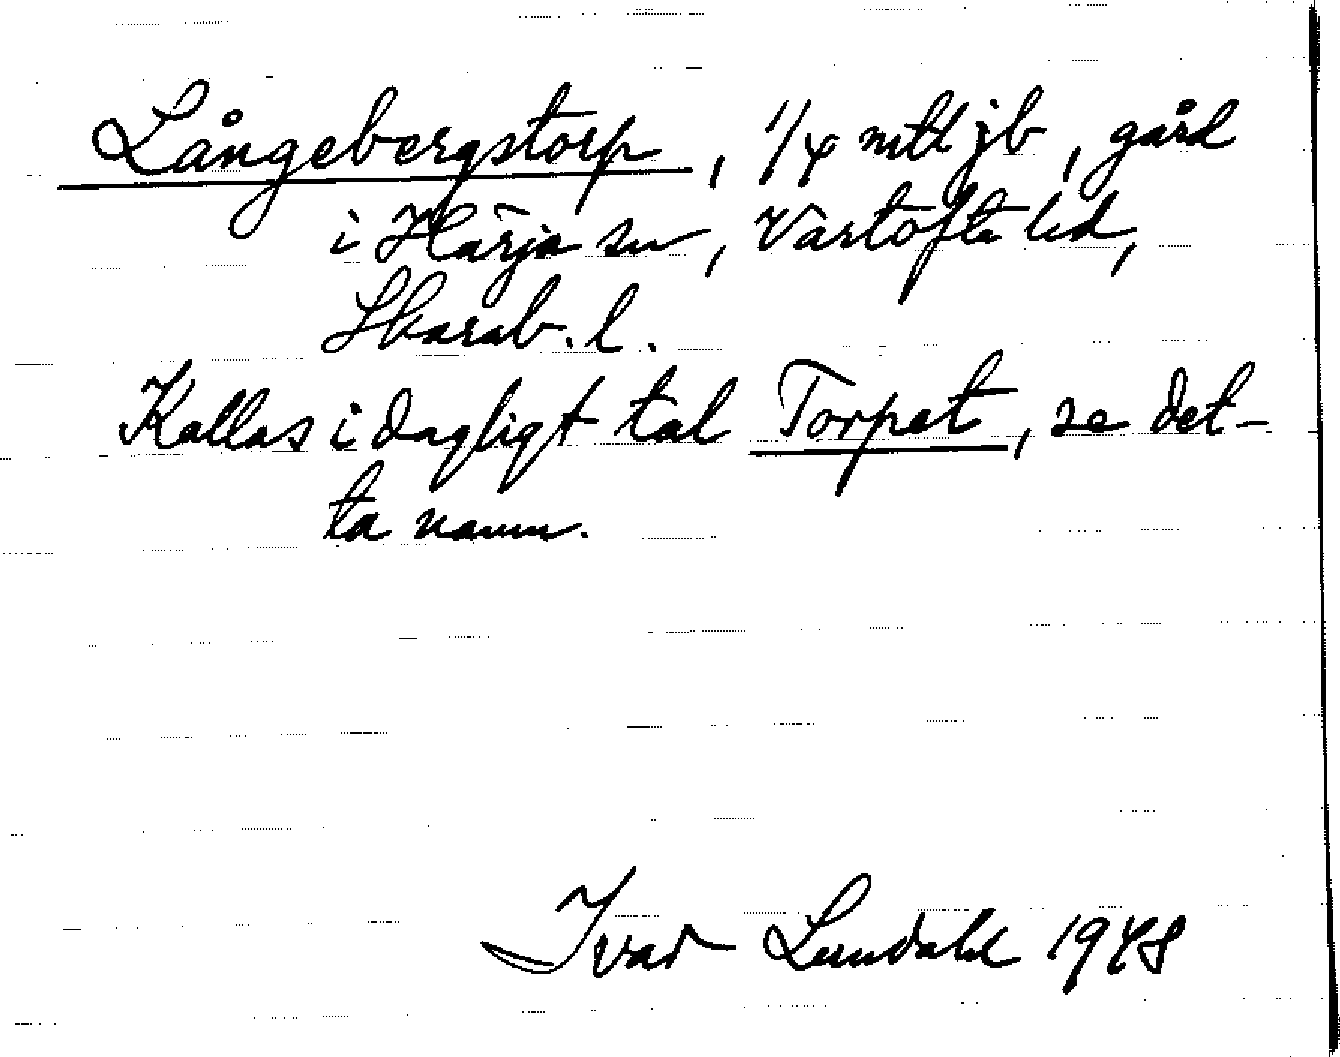 Långebergstorp, 1/4 mtl jb, gård
i Härja sn, Vartofta hd,
Skarab. l.
Kallas i dagligt tal Torpet, se det-
ta namn.
Ivar Lundahl 1948